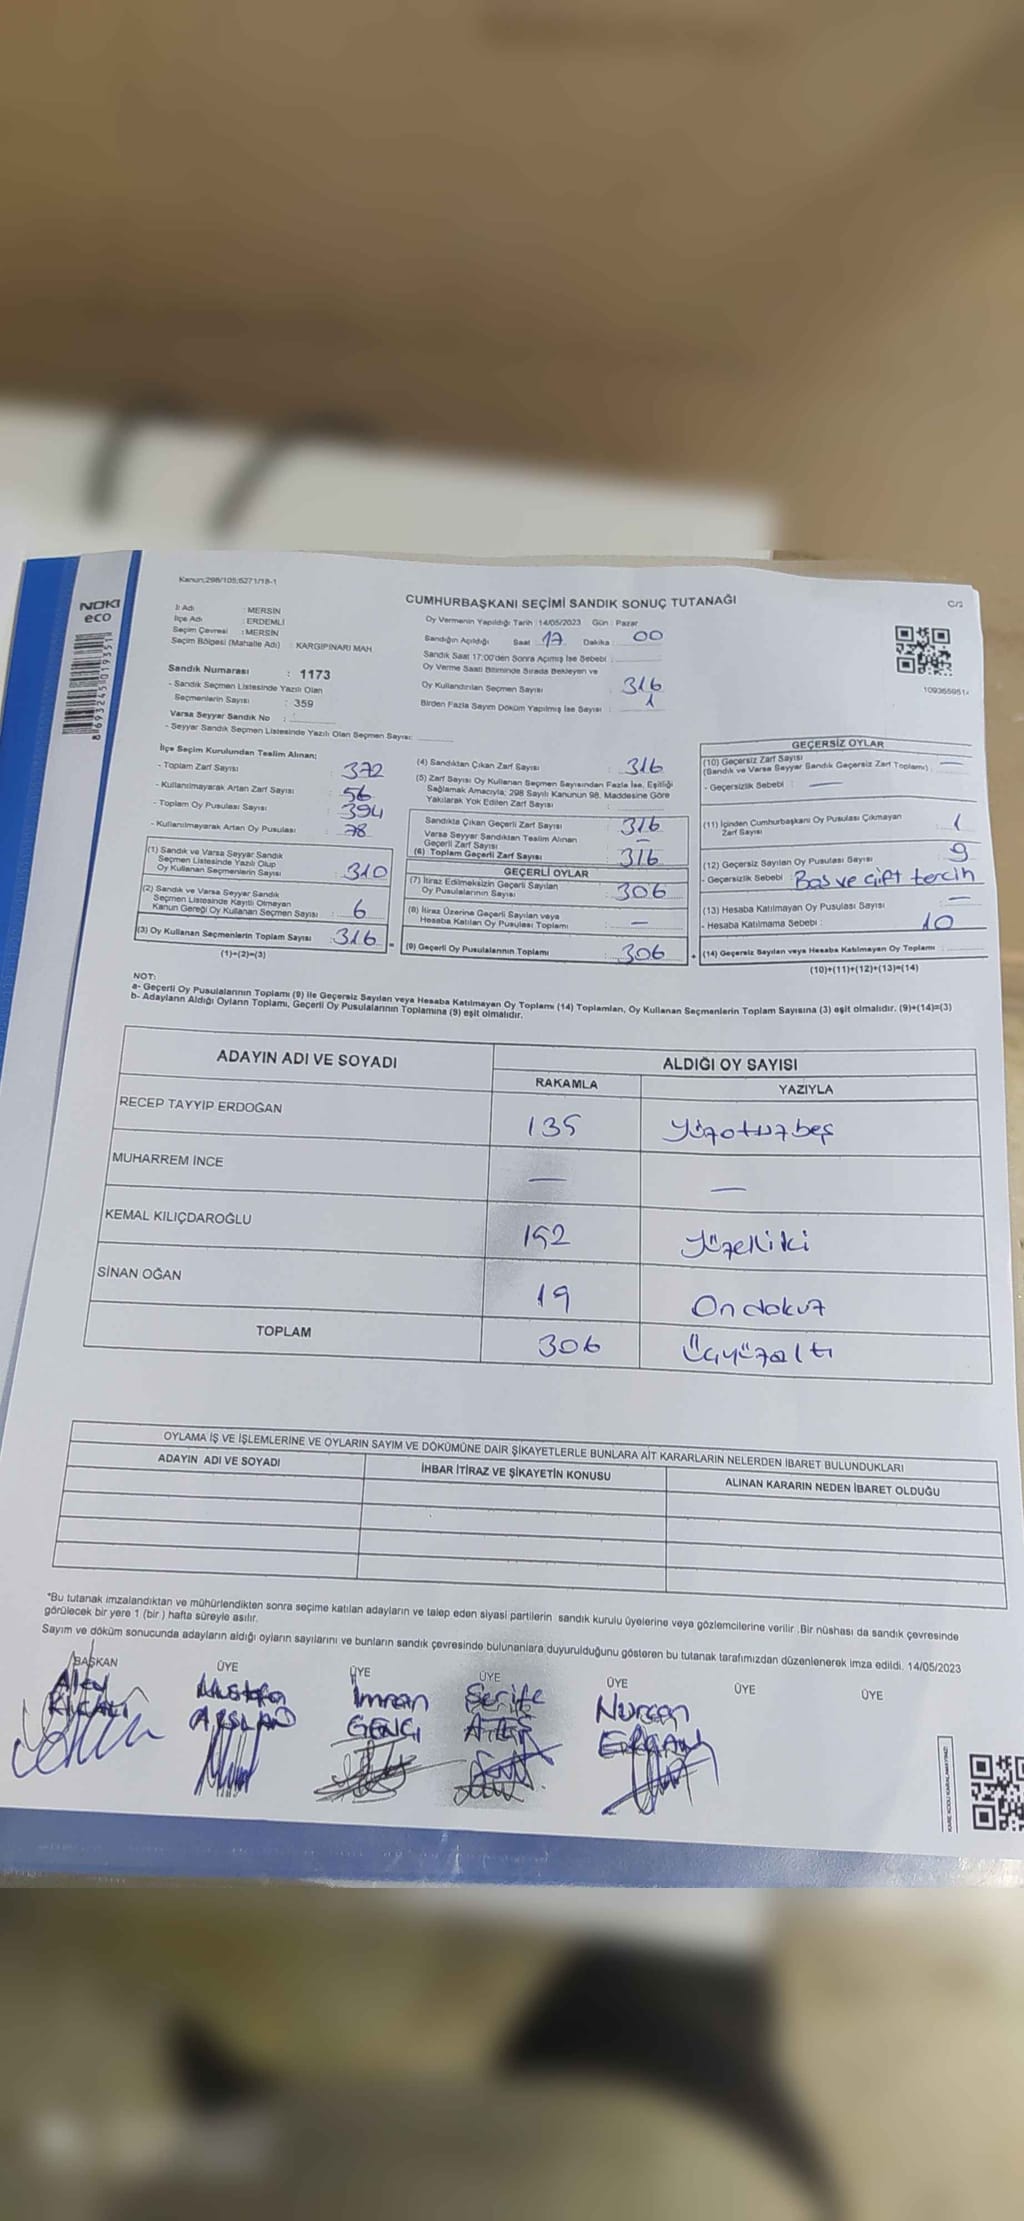 Kanun:298/105;6271/18-1
CUMHURBAŞKANI SEÇİMİ SANDIK SONUÇ TUTANAĞI
C/2
NOKI
eco
8693245019351
İl Adı : MERSİN
İlçe Adı : ERDEMLİ
Seçim Çevresi : MERSİN
Seçim Bölgesi (Mahalle Adı) : KARGIPINARI MAH.
Sandık Numarası : 1173
- Sandık Seçmen Listesinde Yazılı Olan
Seçmenlerin Sayısı : 359
Varsa Seyyar Sandık No :
- Seyyar Sandık Seçmen Listesinde Yazılı Olan Seçmen Sayısı:
Oy Vermenin Yapıldığı Tarih : 14/05/2023 Gün : Pazar
Sandığın Açıldığı Saat : 17 Dakika : 00
Sandık Saat 17:00'den Sonra Açımış İse Sebebi :
Oy Verme Saati Bitiminde Sırada Bekleyen ve
Oy Kullandırılan Seçmen Sayısı : 316
Birden Fazla Sayım Döküm Yapılmış İse Sayısı : 1
İlçe Seçim Kurulundan Teslim Alınan:
- Toplam Zarf Sayısı : 372
- Kullanılmayarak Artan Zarf Sayısı : 56
- Toplam Oy Pusulası Sayısı : 394
- Kullanılmayarak Artan Oy Pusulası : 78
(1) Sandık ve Varsa Seyyar Sandık
Seçmen Listesinde Yazılı Olup
Oy Kullanan Seçmenlerin Sayısı : 310
(2) Sandık ve Varsa Seyyar Sandık
Seçmen Listesinde Kayıtlı Olmayan
Kanun Gereği Oy Kullanan Seçmen Sayısı : 6
(3) Oy Kullanan Seçmenlerin Toplam Sayısı : 316
(1)+(2)=(3)
(4) Sandıktan Çıkan Zarf Sayısı : 316
(5) Zarf Sayısı Oy Kullanan Seçmen Sayısından Fazla İse, Eşitliği
Sağlamak Amacıyla; 298 Sayılı Kanunun 98. Maddesine Göre
Yakılarak Yok Edilen Zarf Sayısı :
Sandıkta Çıkan Geçerli Zarf Sayısı : 316
Varsa Seyyar Sandıktan Teslim Alınan
Geçerli Zarf Sayısı : —
(6) Toplam Geçerli Zarf Sayısı : 316
GEÇERLİ OYLAR
(7) İtiraz Edilmeksizin Geçerli Sayılan
Oy Pusulalarının Sayısı : 306
(8) İtiraz Üzerine Geçerli Sayılan veya
Hesaba Katılan Oy Pusulası Toplamı : —
(9) Geçerli Oy Pusulalarının Toplamı : 306
GEÇERSİZ OYLAR
(10) Geçersiz Zarf Sayısı
(Sandık ve Varsa Seyyar Sandık Geçersiz Zarf Toplamı) : —
- Geçersizlik Sebebi : —
(11) İçinden Cumhurbaşkanı Oy Pusulası Çıkmayan
Zarf Sayısı : 1
(12) Geçersiz Sayılan Oy Pusulası Sayısı : 9
- Geçersizlik Sebebi : Bos ve çift tercih
(13) Hesaba Katılmayan Oy Pusulası Sayısı : —
- Hesaba Katılmama Sebebi : 10
(14) Geçersiz Sayılan veya Hesaba Katılmayan Oy Toplamı :
(10)+(11)+(12)+(13)=(14)
NOT:
a- Geçerli Oy Pusulalarının Toplamı (9) ile Geçersiz Sayılan veya Hesaba Katılmayan Oy Toplamı (14) Toplamları, Oy Kullanan Seçmenlerin Toplam Sayısına (3) eşit olmalıdır. (9)+(14)=(3)
b- Adayların Aldığı Oyların Toplamı, Geçerli Oy Pusulalarının Toplamına (9) eşit olmalıdır.
ADAYIN ADI VE SOYADI ALDIĞI OY SAYISI
RAKAMLA YAZIYLA
RECEP TAYYİP ERDOĞAN 135 Yüzotuzbeş
MUHARREM İNCE — —
KEMAL KILIÇDAROĞLU 152 Yüzelliiki
SİNAN OĞAN 19 Ondokuz
TOPLAM 306 Üçyüzaltı
OYLAMA İŞ VE İŞLEMLERİNE VE OYLARIN SAYIM VE DÖKÜMÜNE DAİR ŞİKAYETLERLE BUNLARA AİT KARARLARIN NELERDEN İBARET BULUNDUKLARI
ADAYIN ADI VE SOYADI İHBAR İTİRAZ VE ŞİKAYETİN KONUSU ALINAN KARARIN NEDEN İBARET OLDUĞU
*Bu tutanak imzalandıktan ve mühürlendikten sonra seçime katılan adayların ve talep eden siyasi partilerin sandık kurulu üyelerine veya gözlemcilerine verilir .Bir nüshası da sandık çevresinde
görülecek bir yere 1 (bir ) hafta süreyle asılır.
Sayım ve döküm sonucunda adayların aldığı oyların sayılarını ve bunların sandık çevresinde bulunanlara duyurulduğunu gösteren bu tutanak tarafımızdan düzenlenerek imza edildi. 14/05/2023
BAŞKAN ÜYE ÜYE ÜYE ÜYE ÜYE ÜYE
Mustafa İmran Şerife Nurcan
ARSLAN GENÇ